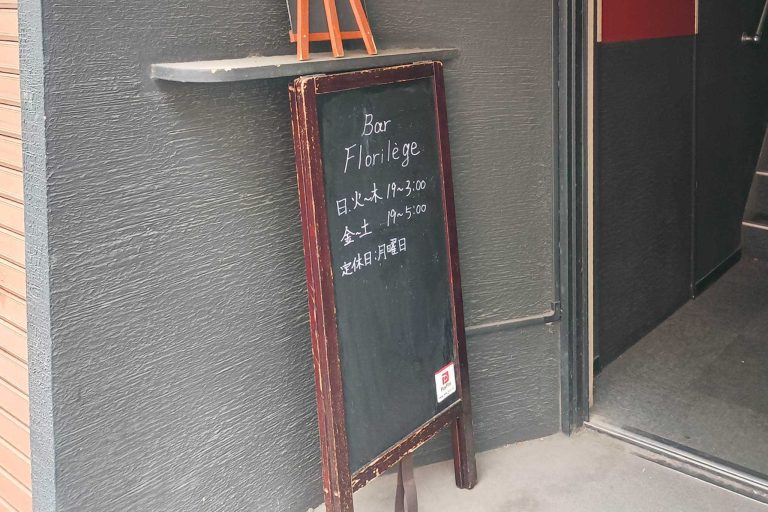 Bar
Florilège
日.火~木 19~3:00
金~土 19~5:00
定休日:月曜日
PayPay